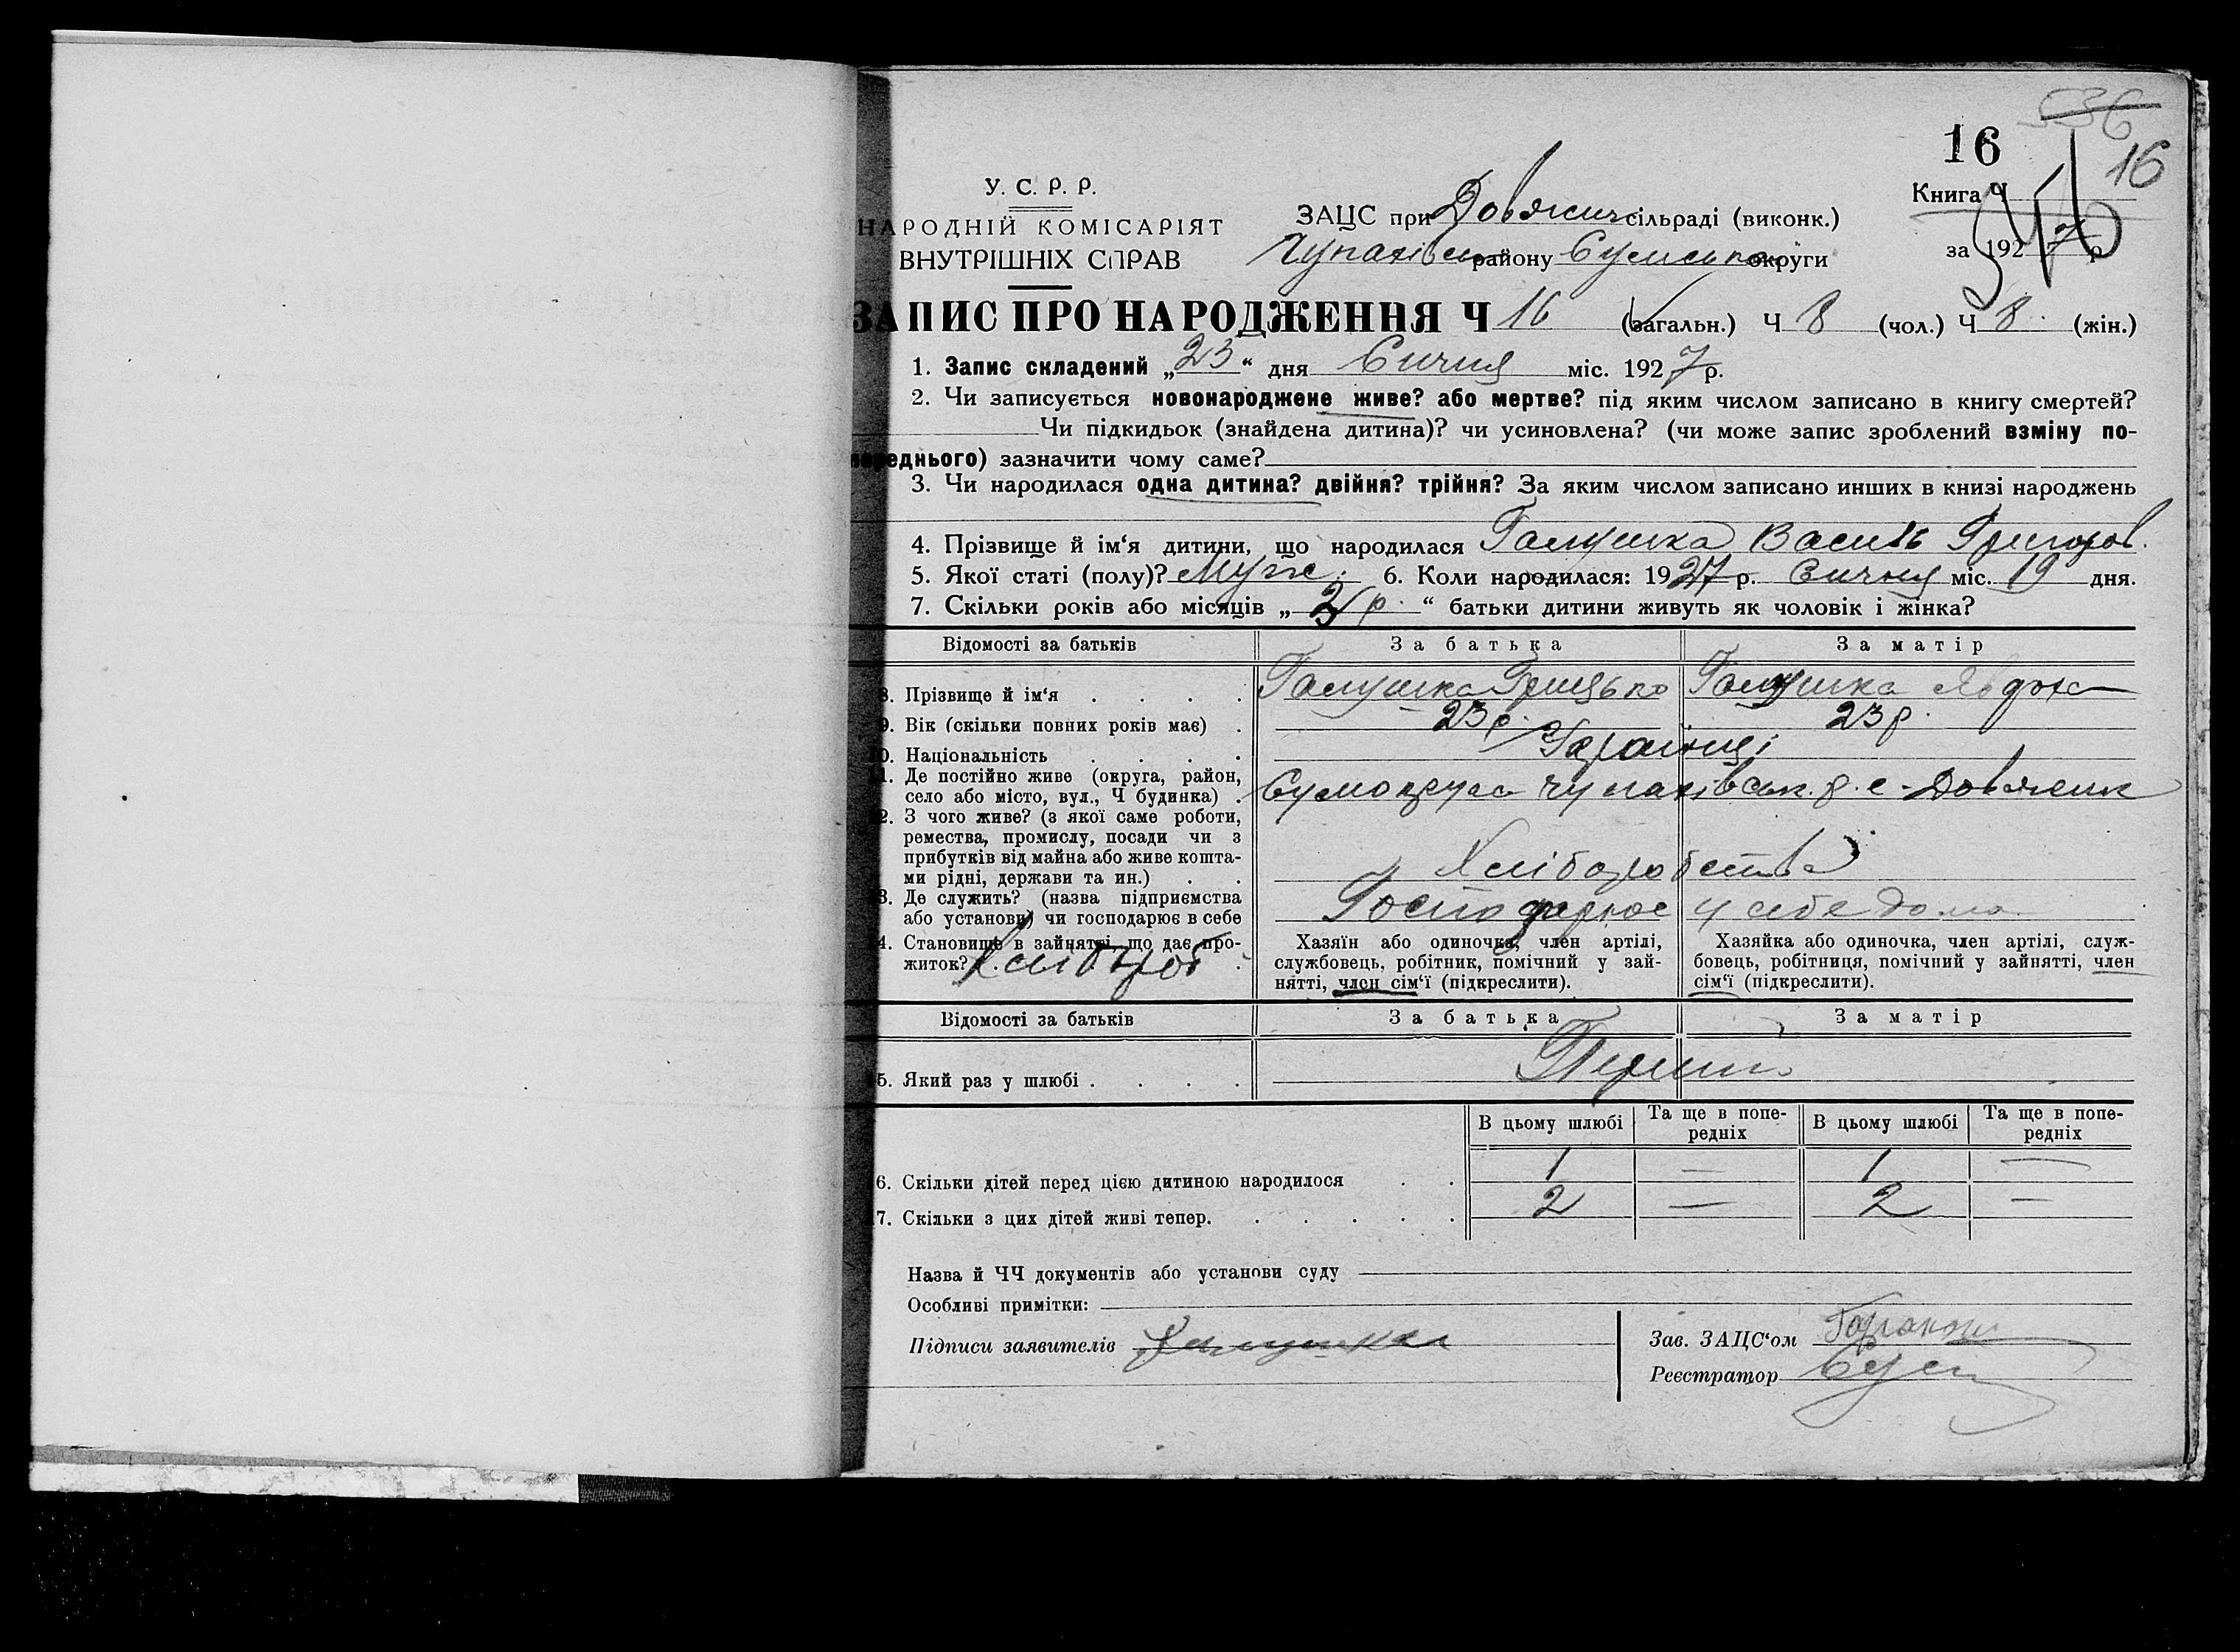 536
16
16
Книга Ч
546
за 1927 р
У. С. Р. Р.
НАРОДНІЙ КОМІСАРІЯТ
ВНУТРІШНІХ СПРАВ
ЗАЦС при Довжич сільраді (виконк.)
Чупахівськ району Сумської округи
ЗАПИС ПРО НАРОДЖЕННЯ Ч 16 (загальн.) Ч 8 (чол.) Ч 8. (жін.)
1. Запис складений „23“ дня Січня міс. 1927 р.
2. Чи записується новонароджене живе? або мертве? під яким числом записано в книгу смертей?
Чи підкидьок (знайдена дитина)? чи усиновлена? (чи може запис зроблений взміну по-
переднього) зазначити чому саме?
3. Чи народилася одна дитина? двійня? трійня? За яким числом записано инших в книзі народжень
4. Прізвище й ім‘я дитини, що народилася Галушка Василь Григоров.
5. Якої статі (полу)? Муж. 6. Коли народилася: 1927 р. Січня міс. 19 дня.
7. Скільки років або місяців „ 3 р. “ батьки дитини живуть як чоловік і жінка?
Відомості за батьків За батька За матір
8. Прізвище й ім‘я . . . . Галушка Грицько Галушка Явдоха
9. Вік (скільки повних років має) . 23 р. 23 р.
10. Національність . . . . Українці
11. Де постійно живе (округа, район,
село або місто, вул., Ч будинка) . Сумокруга Чупахівськ. р. с. Довжик
12. З чого живе? (з якої саме роботи,
ремества, промислу, посади чи з
прибутків від майна або живе кошта-
ми рідні, держави та ин.) . . Хліборобства
13. Де служить? (назва підприємства
або установи) чи господарює в себе Господарює у себе дома
14. Становище в зайнятті, що дає про-
житок? Хлібороб
Хазяїн або одиночка, член артілі,
службовець, робітник, помічний у зай-
нятті, член сім‘ї (підкреслити).
Хазяйка або одиночка, член артілі, служ-
бовець, робітниця, помічний у зайнятті, член
сім‘ї (підкреслити).
Відомості за батьків За батька За матір
15. Який раз у шлюбі . . . . Перший
В цьому шлюбі Та ще в попе-редніх В цьому шлюбі Та ще в попе-редніх
16. Скільки дітей перед цією дитиною народилося . . 1 — 1 —
17. Скільки з цих дітей живі тепер. . . . . . 2 — 2 —
Назва й ЧЧ документів або установи суду
Особливі примітки:
Підписи заявителів Галушка
Зав. ЗАЦС‘ом
Реєстратор